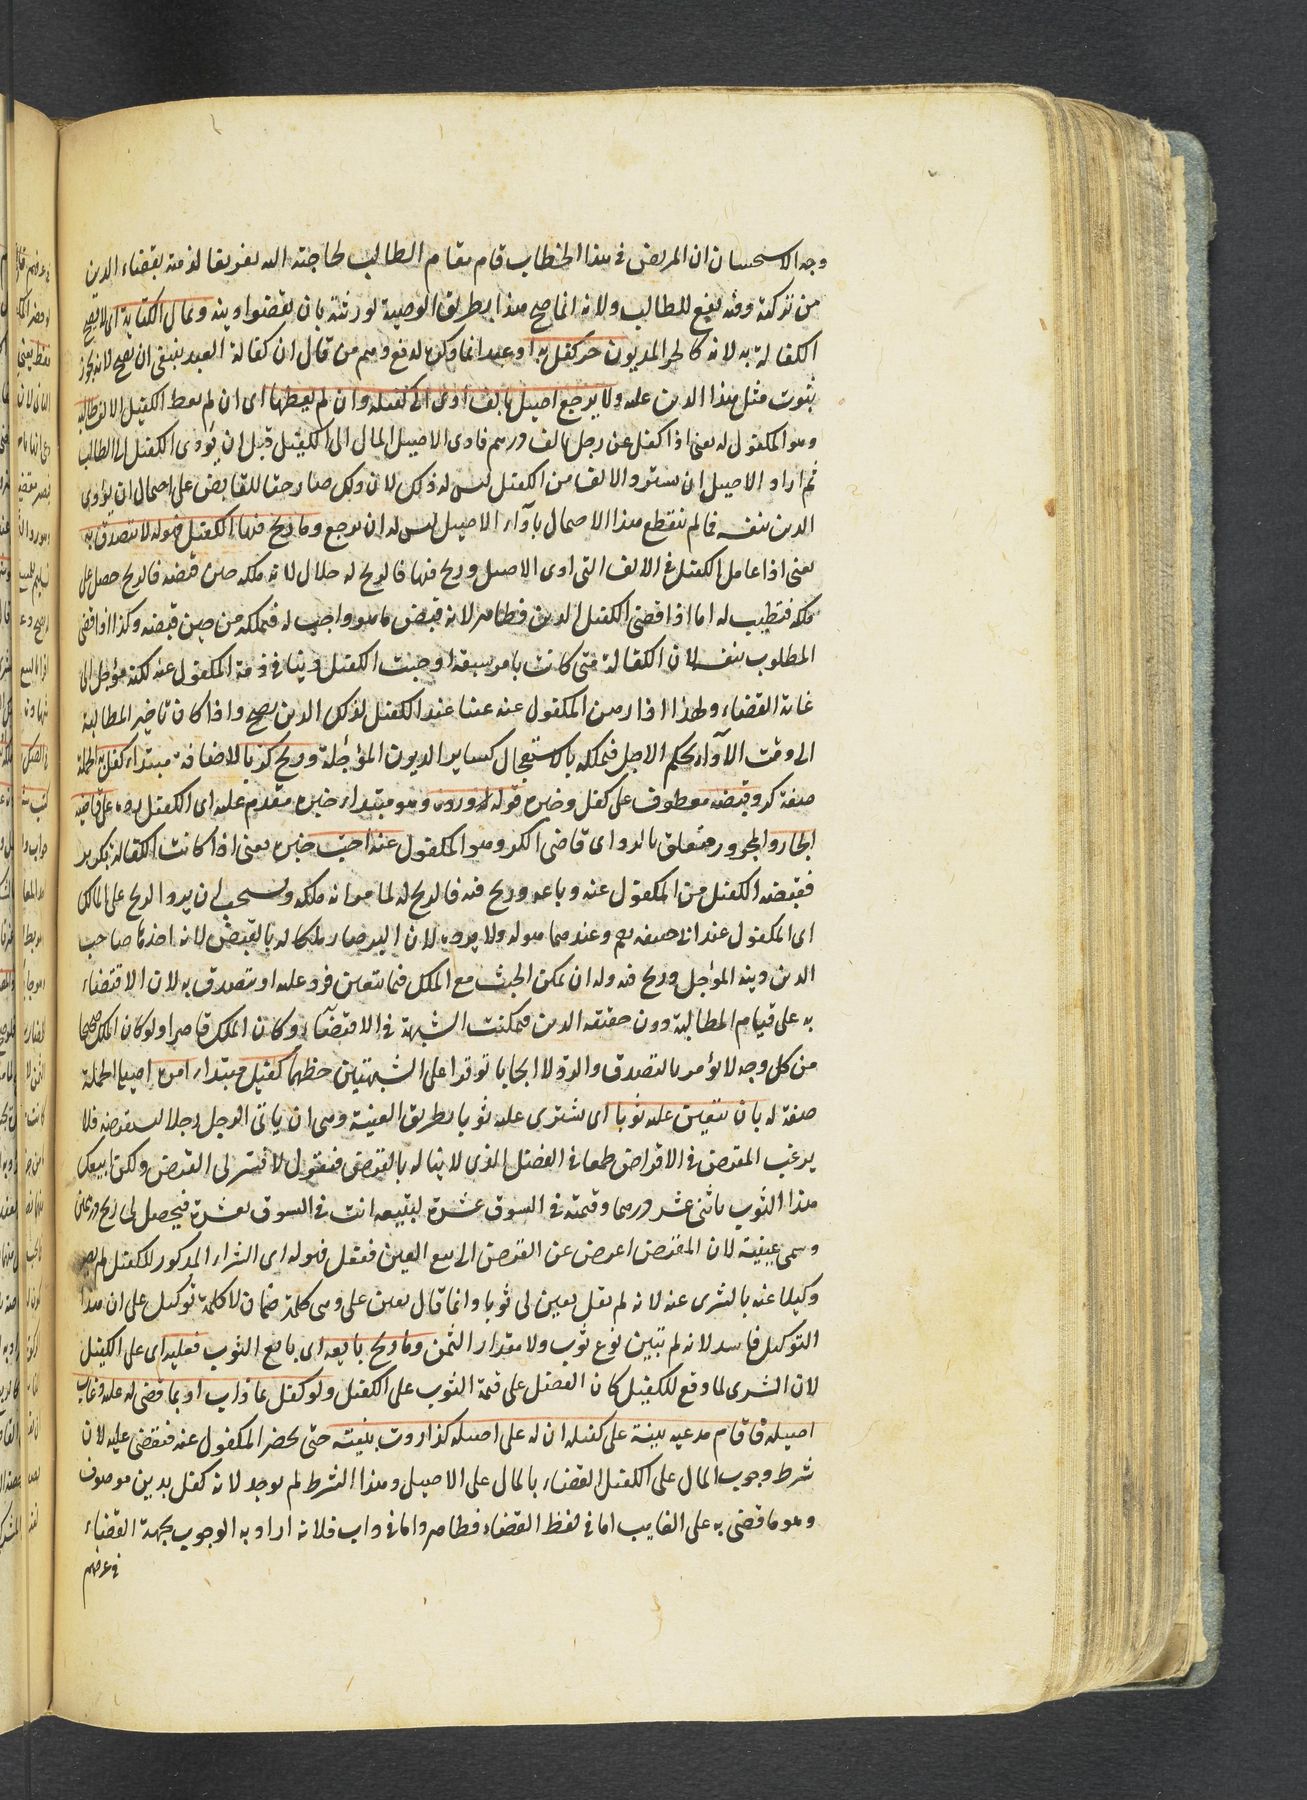 وجه الاستحسان ان المريض في هذا الخطاب قام مقام الطالب لحاجته اليه تفريغا لذمته بقضاء الدين
من تركته وفيه نفع للطالب ولانه انما صح هذا بطريق الوصية لورثته بان يقضوا دينه وبمال الكتابة اى لا يصح
الكفالة به لانه كالحر المديون حر كفل به او عبد انما ذكره لدفع وهم من قال ان كفالة العبد ينبغي ان يصح لانه يجوز
ثبوت مثل هذا الدين عليه ولا يرجع اصيل بالف ادى الى كفيله وان لم يعطها اى ان لم يعط الكفيل الالف طالبه
وهو المكفول له يعنى اذا كفل عن رجل بالف درهم فادى الاصيل المال الى الكفيل قبل ان يؤدى الكفيل الى الطالب
ثم اراد الاصيل ان يسترد الالف من الكفيل ليس له ذلك لان ذلك صار حقا للقابض على احتمال ان يؤدى
الدين بنفسه فما لم ينقطع هذا الاحتمال باداء الاصيل ليس له ان يرجع وما ربح فيها الكفيل فهو له لا يتصدق به
يعنى اذا عامل الكفيل في الالف التى ادى الاصيل وربح فيها فالربح له حلال لانه ملكه حين قبضه فالربح حصل على
ملكه فتطيب له اما اذا قضى الكفيل الدين فظاهر لانه قبض ما هو واجب له فملكه من حين قبضه وكذا اذا قضى
المطلوب بنفسه لان الكفالة متى كانت بامر سبقه اوجبت الكفيل دينا في ذمة المكفول عنه لكنه مؤجل الى
غاية القضاء ولهذا اذا رهن المكفول عنه عينا عند الكفيل لذلك الدين يصح واذا كان تاخير المطالبة
الى وقت الاداء بحكم الاجل فتملكه بالاستعجال كساير الديون المؤجلة وربح كر بالاضافة مبتداء كفل به الجملة
صفة كر وقبضه معطوف على كفل وخبره قوله له ورده وهو مبتداء خبره مقدم عليه اى الكفيل رده على قاضيه
الجار والمجرور متعلق بالرد اى قاضى الكر وهو المكفول عنه احب خبره يعنى اذا كانت الكفالة بكر بر
فقبضه الكفيل من المكفول عنه وباعه وربح فيه فالربح له لما مر انه ملكه ويستحب ان يرد الربح على المالك
اى المكفول عنه عند ابى حنيفة رحمه وعندهما هو له ولا يرده لان البر صار ملكا له بالقبض لانه اخذها صاحب
الدين دينه المؤجل وربح فيه وله ان تمكن الخبث مع الملك فيما يتعين فرد عليه او يتصدق به لان الاقتضاء
به على قيام المطالبة دون حقيقة الدين فمكنت الشبهة في الاقتضاء وكان الملك قاصرا ولو كان الملك صحيحا
من كل وجه لا يؤمر بالتصدق والرد لا ايجابا توقرا على الشبهتين حظهما كفيل مبتداء امره اصيل الجملة
صفة له بان يتعين عليه ثوبا اى يشترى عليه ثوبا بطريق العينة وهى ان ياتى الرجل رجلا ليستقرضه فلا
يرغب المقرض في الاقراض طمعا في الفضل الذى لا يناله بالقرض فيقول لا تيسر لى القرض ولكن ابيعك
هذا الثوب باثنى عشر درهما وقيمته في السوق عشرة لتبيعه انت في السوق بعشرة فيحصل لى ربح درهمين
وسمى عينة لان المقرض اعرض عن القرض الى بيع العين ففعل فهو له اى الشراء المذكور للكفيل لم يصر
وكيلا عنه بالشرى عنه لانه لم يقل يعين لى ثوبا وانما قال تعين على وهى كلمة ضمان لا كلمة توكيل على ان هذا
التوكيل فاسد لانه لم تبين نوع ثوب ولا مقدار الثمن وما ربح بايعه اى بايع الثوب فعليه اى على الكفيل
لان الشرى لما وقع للكفيل كان الفضل على قيمة الثوب على الكفيل ولو كفل بما ذاب او بما قضى له عليه وغاب
اصيله فاقام مدعيه بينة على كفيله ان له على اصيله كذا ردت بينته حتى يحضر المكفول عنه فيقضى عليه لان
شرط وجوب المال على الكفيل القضاء بالمال على الاصيل وهذا الشرط لم يوجد لانه كفل بدين موصوف
وهو ما قضى به على الغايب اما في لفظ القضاء فظاهر واما في ذاب فلانه اراد به الوجوب بجهة القضاء
في عرفهم